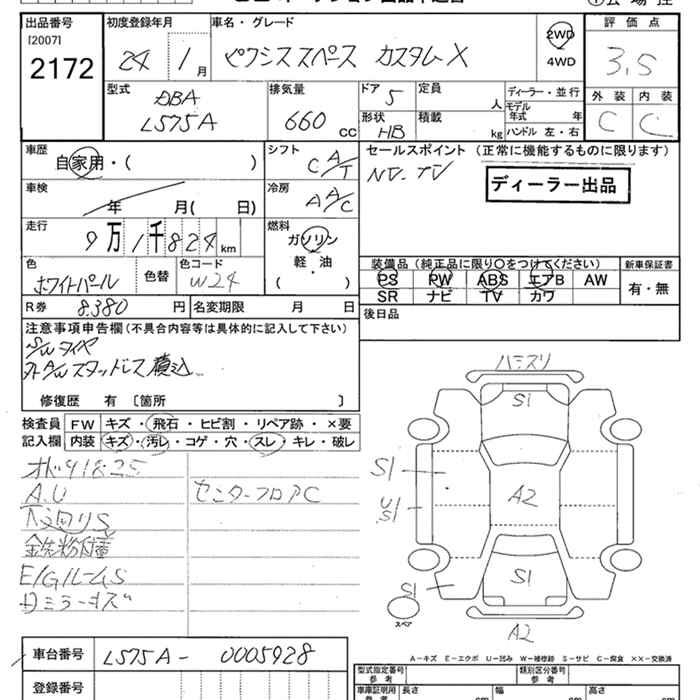 出品番号 初度登録年月 車名・グレード 2WD 評価点
[2007]
2172 24 1月 ピクシススペース カスタムX 4WD 3.5
型式 排気量 ドア 5 定員 人 ディーラー・並行 外装 内装
DBA モデル年式 年
L575A 660 CC 形状 HB 積載 kg ハンドル 左・右 C C
車歴 自家用・( ) シフト C A/T セールスポイント (正常に機能するものに限ります)
車検 年 月( 日) 冷房 A A/C NV. TV ディーラー出品
走行 9万1千824km 燃料 ガソリン 軽・油 ( )
装備品 (純正品に限り○をつけてください) 新車保証書
色 ホワイトパール 色替 色コード W24 PS PW ABS エアB AW 有・無
SR ナビ TV カワ
R券 8,380円 名変期限 月 日 後日品
注意事項申告欄(不具合内容等は具体的に記入して下さい)
S/Wタイヤ
外A/Wスタッドレス積込
修復歴 有 〔箇所 〕
検査員記入欄 FW キズ・飛石・ヒビ割・リペア跡・×要
内装 キズ・汚レ・コゲ・穴・スレ・キレ・破レ
オド91825
A.U センターフロアC
下廻りS
鉄粉付着
E/GルームS
ミラーキズ
S1
S1
A2
U
S1
S1
S1
スペア
A2
A-キズ E-エクボ U-凹み W-補修跡 S-サビ C-腐食 ××-交換済
車台番号 L575A - 0005928
型式指定番号 参考 類別区分番号 参考
登録番号
車庫証明用 参考 長さ cm 幅 cm 高さ cm